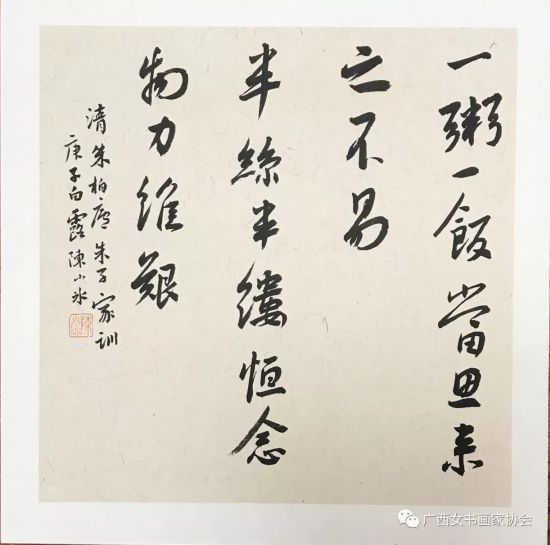 一粥一飯當思来
之不易
半絲半縷恒念
物力維艱
清朱柏廬朱子家訓
庚子白露陳小冰
广西女书画家协会